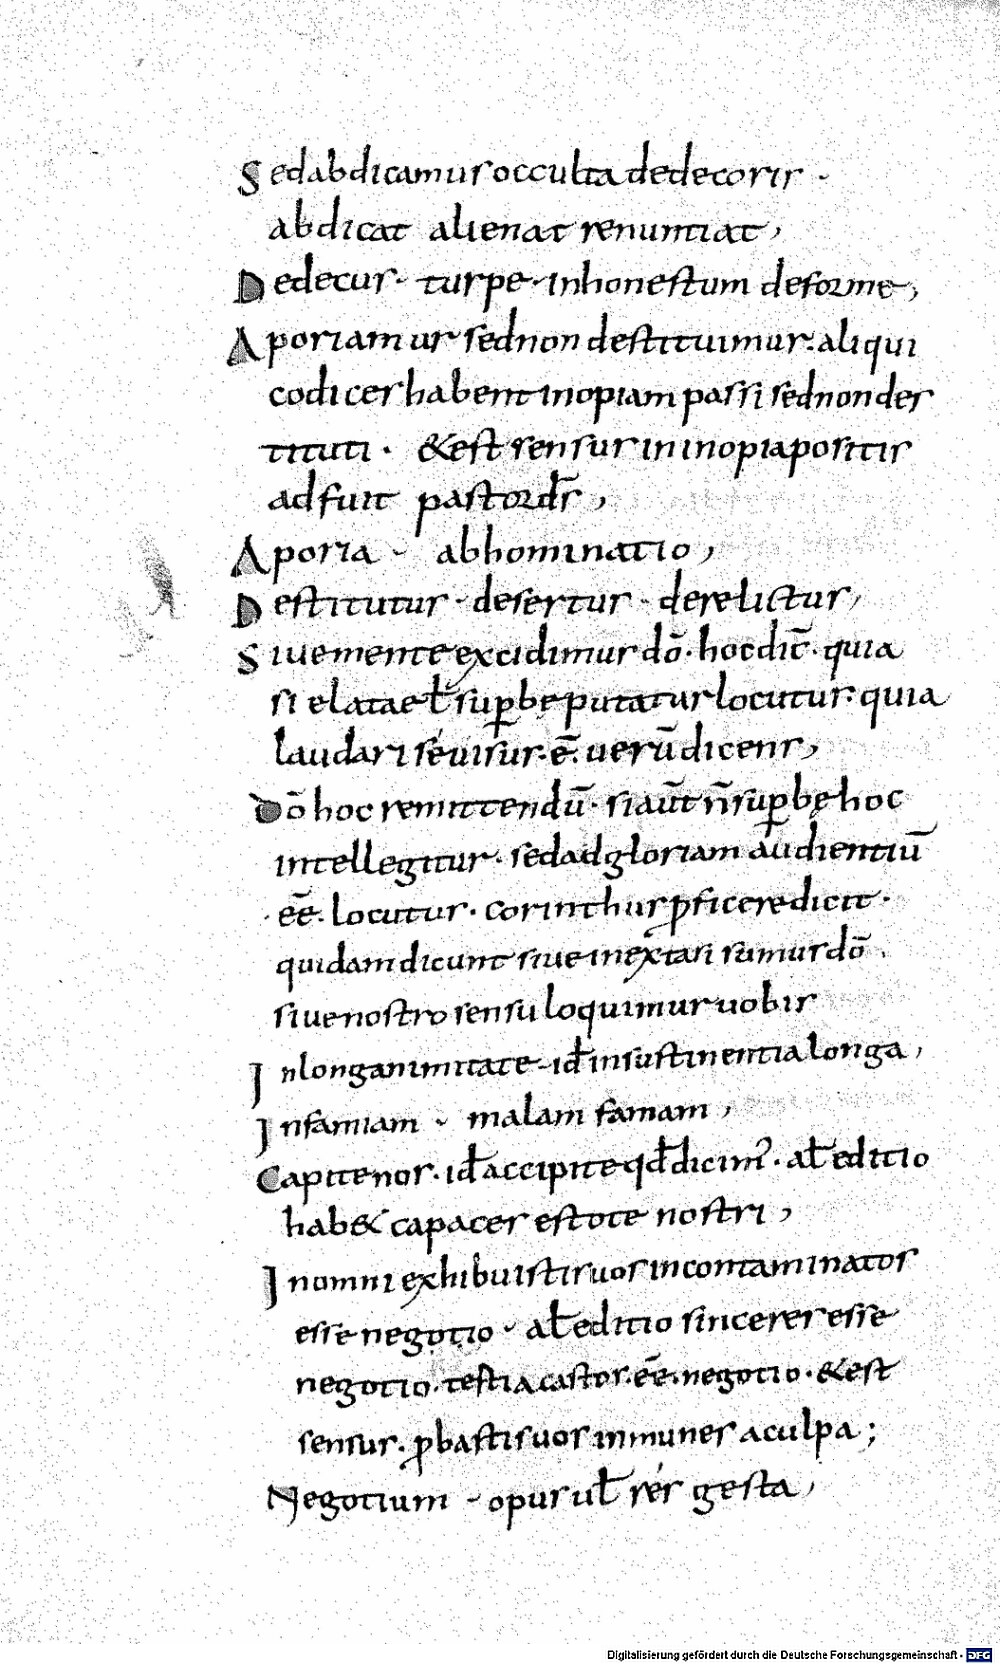 Sed abdicamus occulta dedecoris ·
abdicat alienat renuntiat,
Dedecus · turpe · inhonestum deforme,
Aporiamur sed non destituimur · aliqui
codices habent inopiam passi sed non des
tituti · & est sensus in inopia positis
adfuit pastor dſ̄,
Aporia · abhominatio,
Destitutus · desertus · derelictus,
Sive mente excidimus dō · hoc dic̄ · quia
si elatae ł sup̱bę putatur locutus · quia
laudari sé uisus · ē · uerū dicens,
Dō hoc remittendū · si aūt n̄ sup̱bę hoc
intellegitur · sed ad gloriam audientiū
· eē · locutus · corinthus ꝓficere dicit ·
quidam dicunt siue in extasi sumus dō
siue nostro sensu loquimur uobis
In longanimitate · id̄ in sustinentia longa,
Infamiam · malam famam,
Capite nos · id̄ accipite qd̄ dicim' · al̄ editio
hab& capaces estote nostri,
In omni exhibuistis uos incontaminatos
esse negotio · al̄ editio sinceres esse
negotio · testia castos · eē · negotio · & est
sensus · ꝓbastis uos inmunes a culpa;
Negotium · opus ul̄ rés gesta,
Digitalisierung gefördert durch die Deutsche Forschungsgemeinschaft · DFG